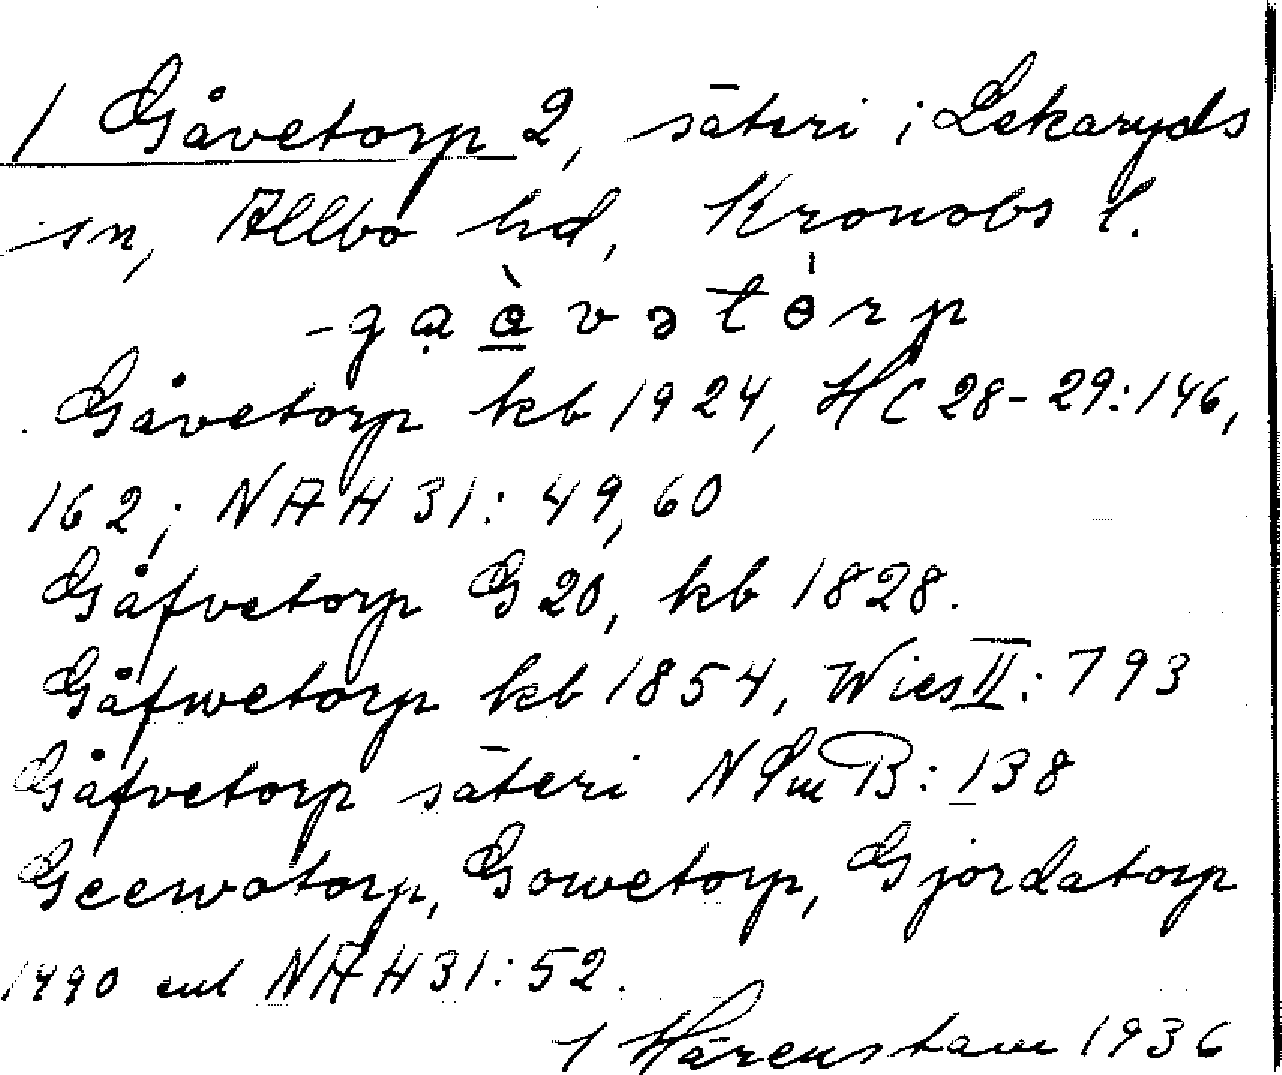 1 Gåvetorp 2, säteri i Lekaryds
sn, Allbo hd, Kronobs l.
-gạàvətɵ́rp
Gåvetorp kb 1924, HC 28-29:146,
162; NAH 31: 49, 60
Gåfvetorp G 20, kb 1828.
Gåfwetorp kb 1854, Wies II: 793
Gåfvetorp säteri N Sm B: 138
Geewatorp, Gowetorp, Gjordatorp
1490 enl NAH 31: 52.
I Härenstam 1936